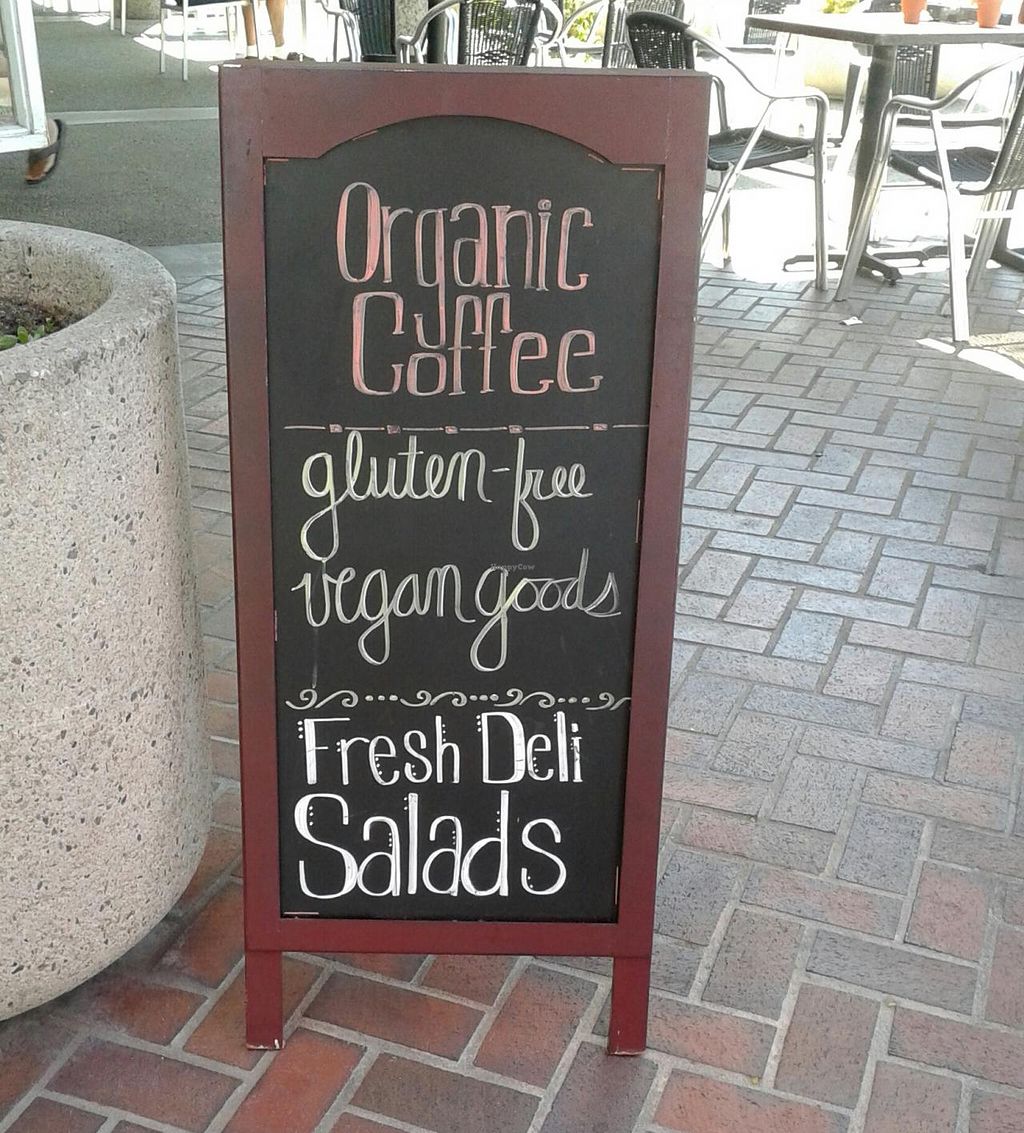 Organic
Coffee
gluten-free
HappyCow
vegan goods
Fresh Deli
Salads